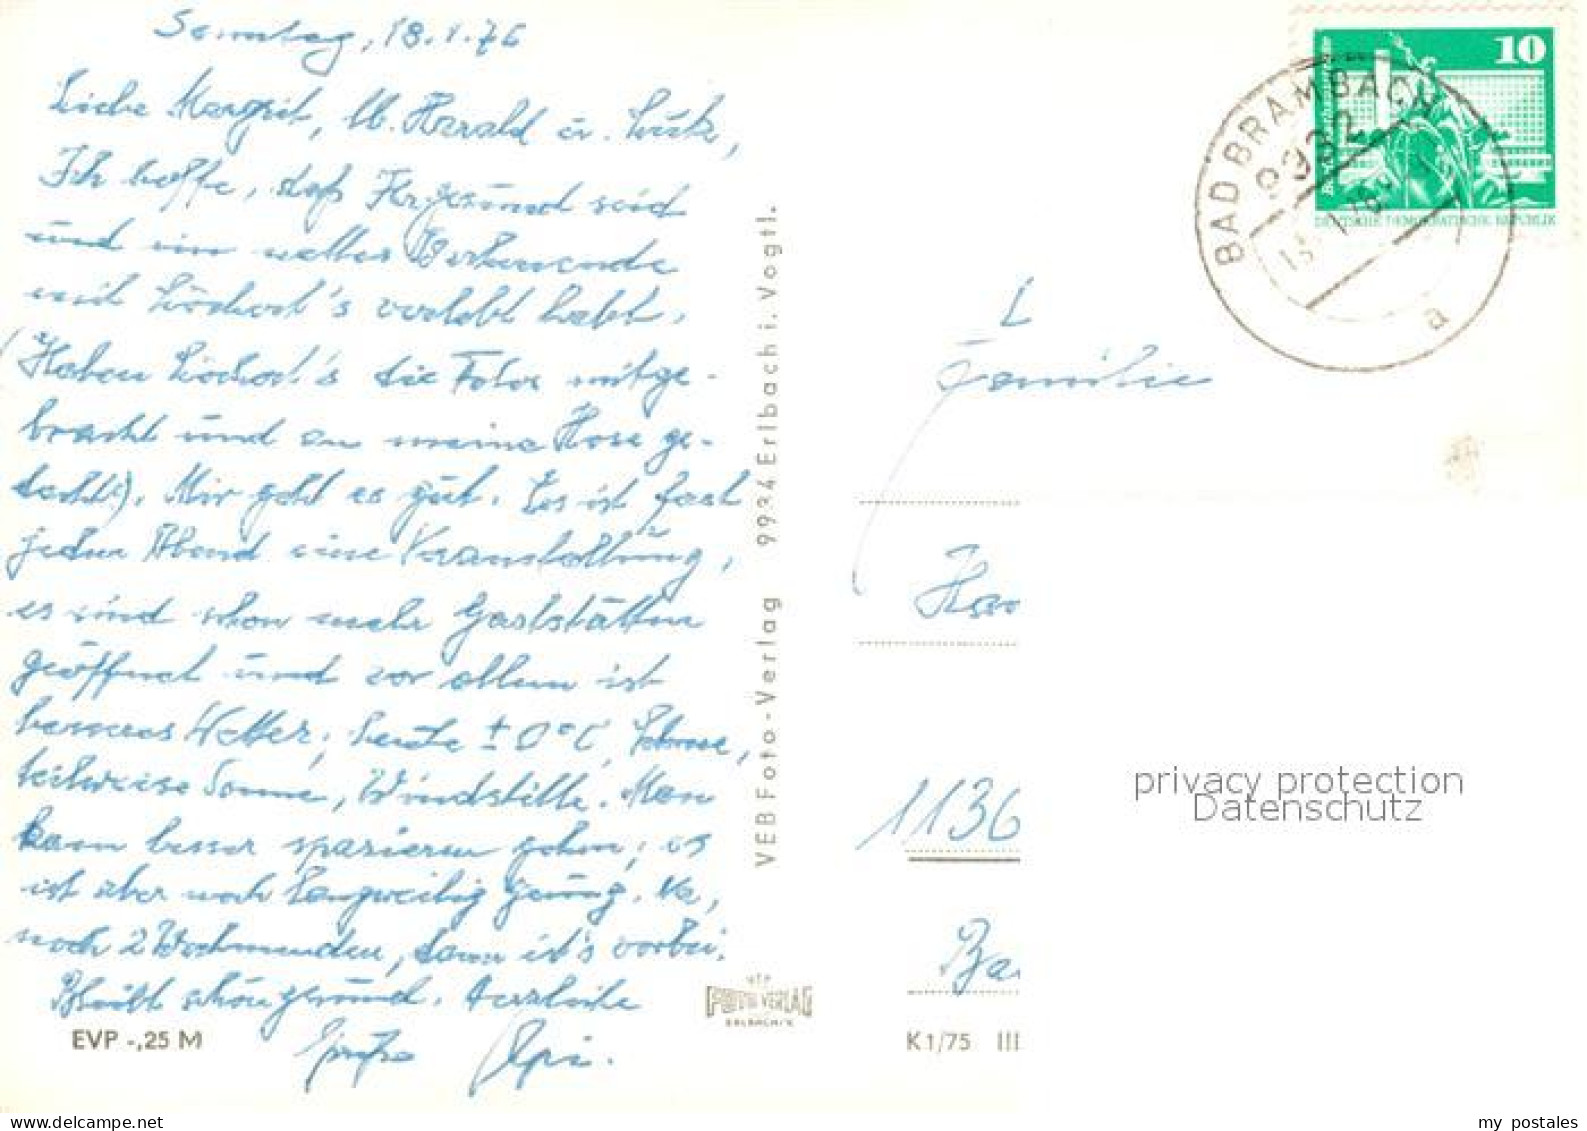 Sonntag, 18.1.76
Liebe Margrit, lb. Harald u. Lutz,
Ich hoffe, daß Ihr gesund seid
und ein nettes Wochenende
mit 's verlebt habt.
(Haben 's die Fotos mitge-
bracht und an meine Hose ge-
dacht?). Mir geht es gut. Es ist fast
jeden Abend eine Veranstaltung,
es sind schon mehr Gaststätten
geöffnet und vor allem ist
besseres Wetter; heute ± 0°C, Schnee,
teilweise Sonne, Windstille. Man
kann besser spazieren gehen; es
ist aber noch langweilig genug. Na,
noch 2 Wochenenden, dann ist's vorbei.
Bleibt schön gesund. Herzliche
Grüße Opi.
EVP -,25 M
VEB Foto-Verlag 9934 Erlbach i. Vogtl.
FOTO VERLAG
ERLBACH/V.
K 1/75 III
10
DEUTSCHE DEMOKRATISCHE REPUBLIK
BAD BRAMBACH
9932
a
Familie
1136
privacy protection
Datenschutz
my postales